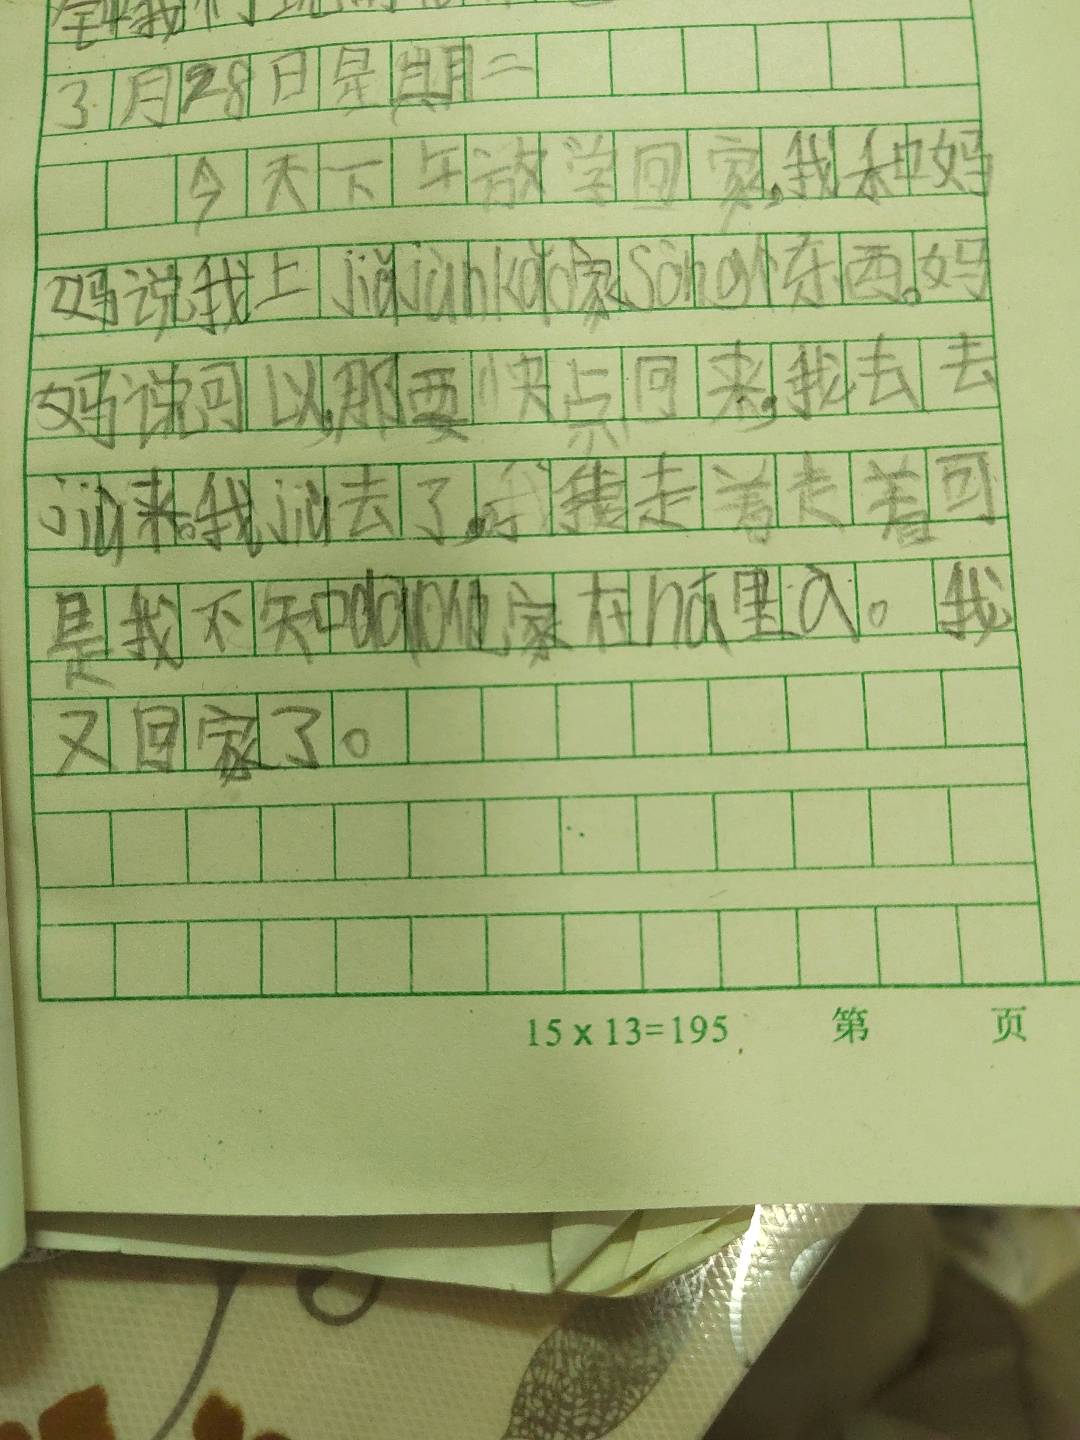 我们
3月28日是期二
今天下午放学回家,我和妈
妈说我上jiajùnkǎi家sòng东西。妈
妈说可以,那要快点回来,我去去
jiù来。我jiù去了,我走着走着可
是我不知dào他家在nǎ里a。我
又回家了。
15 x 13=195 第 页